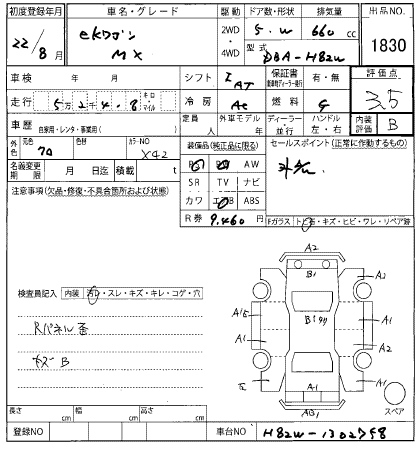 初度登録年月 車名・グレード 駆動 ドア数・形状 排気量 出品NO
22/8月 ekワゴン MX 2WD・4WD 5.W 660cc 1830
型式 DBA-H82W
車検 年 月 シフト I AT 保証書 有・無 評価点 3.5
走行 5万2千4.8 キロ・マイル 冷房 AC 燃料 G
車歴 自家用・レンタ・事業用( ) 定員 人 外車モデル 年 ディーラー 並行 ハンドル 左・右 内装評価 B
外色 元色 クロ 色替 カラーNO X42 装備品(純正品に限る) セールスポイント(正常に作動するもの)
AW
名義変更期限 月 日迄 積載 t SR TV ナビ
注意事項(欠品・修復・不具合箇所および状態) カワ エアB
R券 9.460円 Fガラス トビ石・キズ・ヒビ・ワレ・リペア跡
A2
B1 A2
検査員記入 内装 ヨゴレ・スレ・キズ・キレ・コゲ・穴
A1E B1 A1
Rパネル歪
A1 A2
キズB
A1 A1
AB1 スペア
長さ cm 幅 cm 高さ cm
登録NO 車台NO H82W-1302758